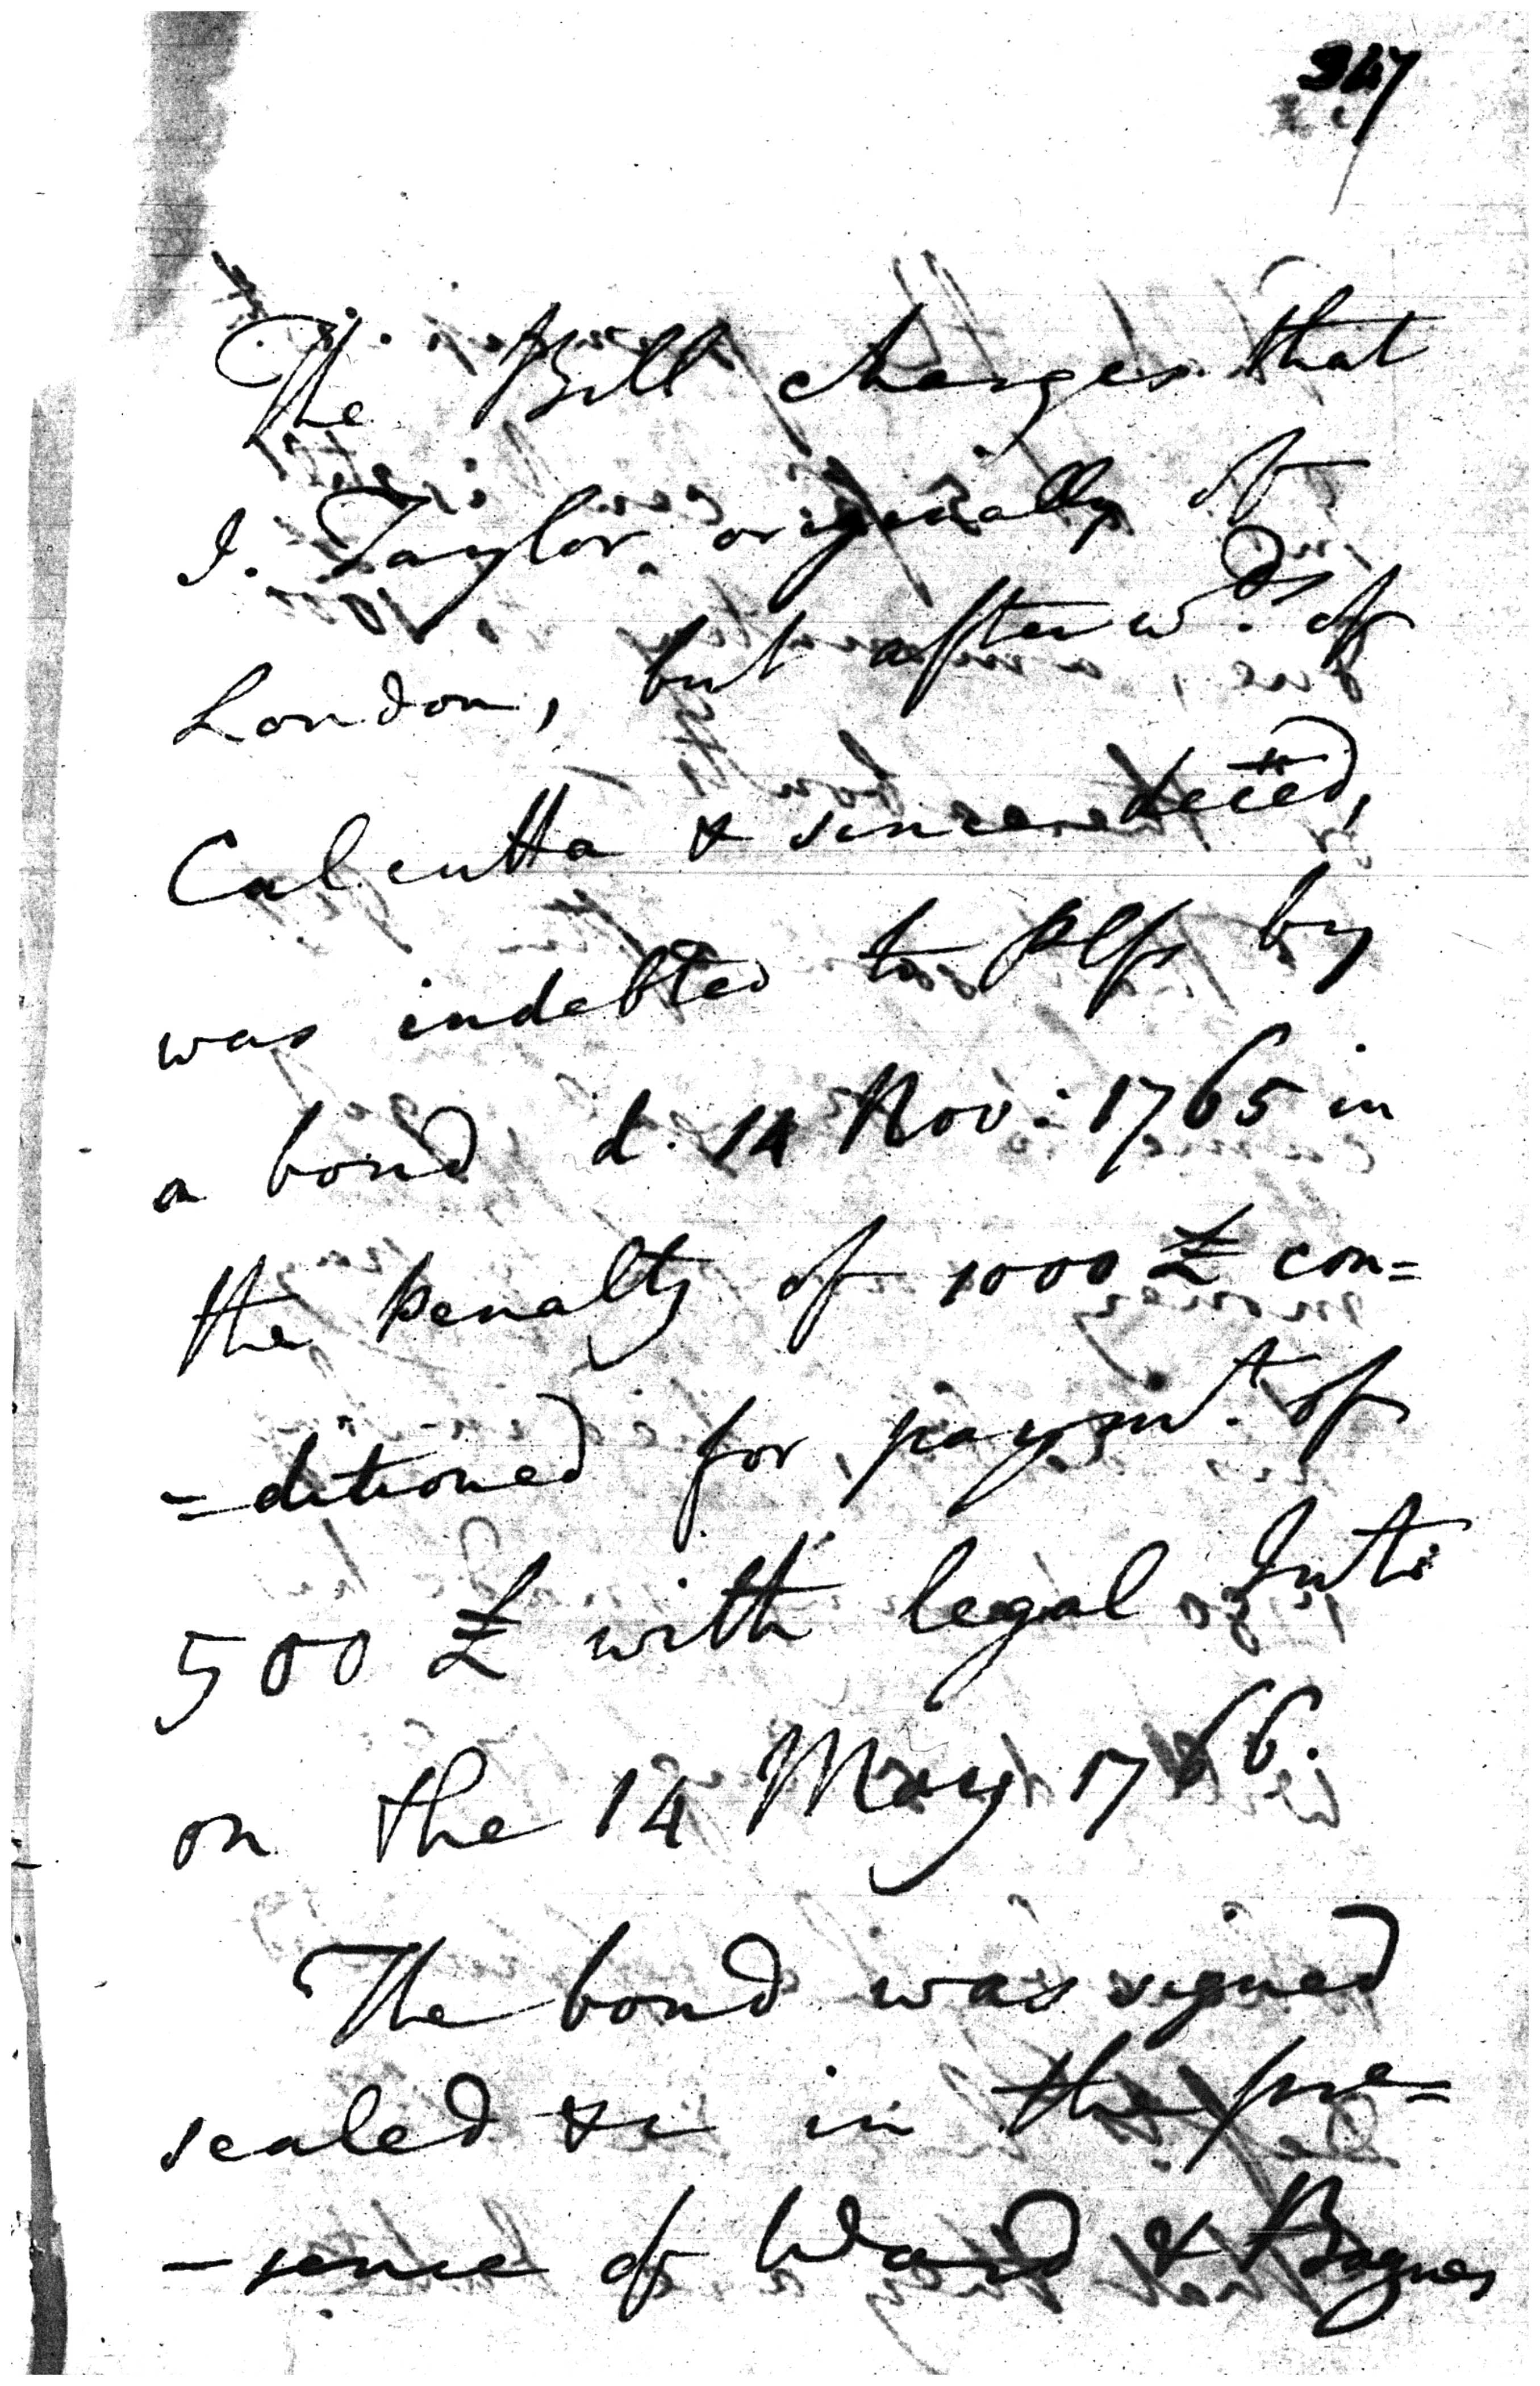 347
The Bill charges that
I. Taylor originally of
London, but afterwds. of
Calcutta & since deced,
was indebted to Plfs by
a bond d. 14 Nov: 1765 in
the penalty of 1000 £ con=
=ditioned for paymt. of
500 £ with legal Intt
on the 14 May 1766.
The bond was signed
sealed &c in the pre=
-sence of Ward &